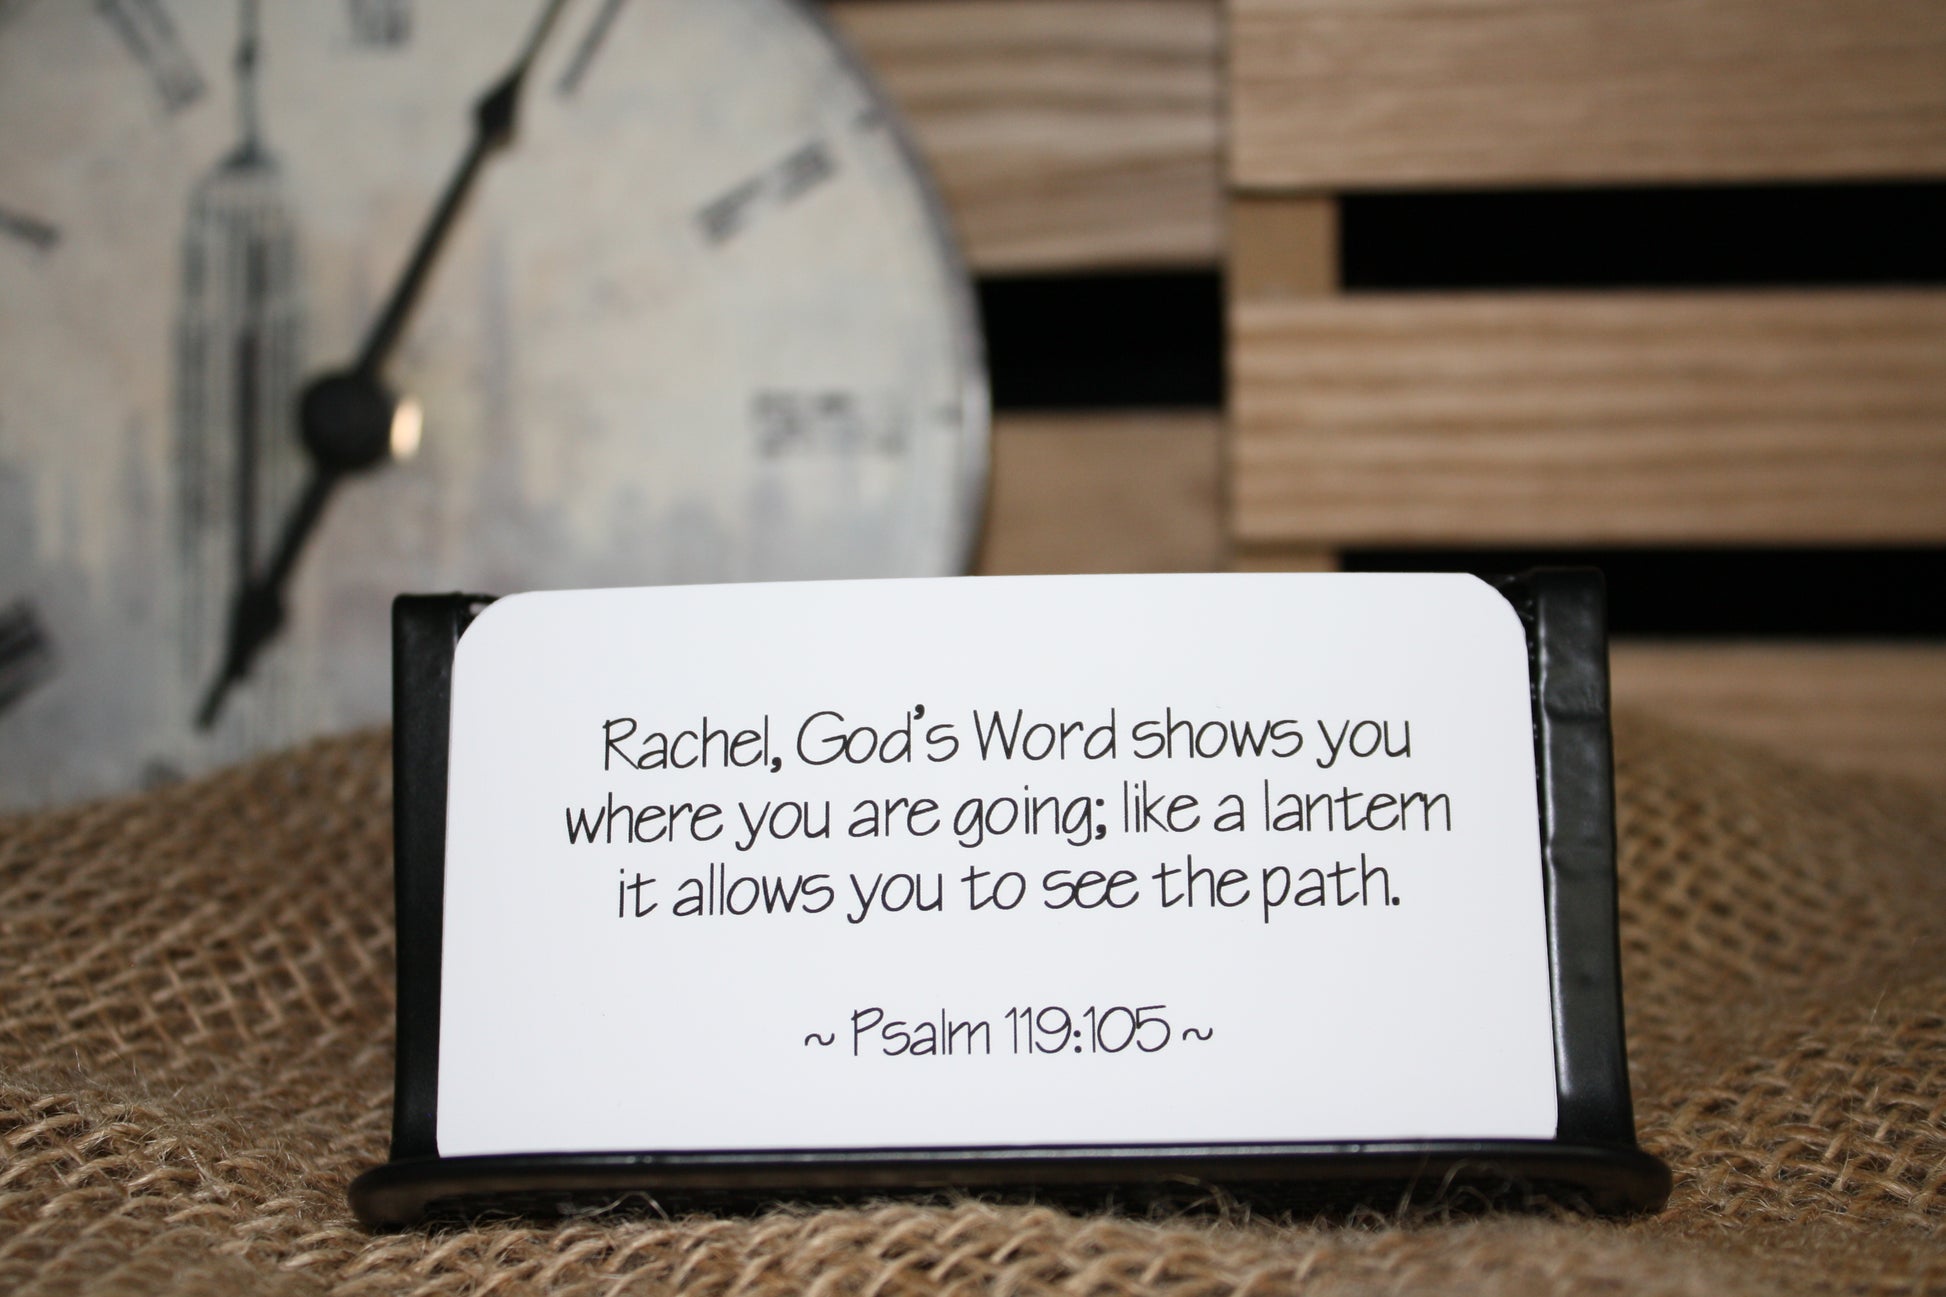 Rachel, God's Word shows you
where you are going; like a lantern
it allows you to see the path.
~ Psalm 119:105 ~